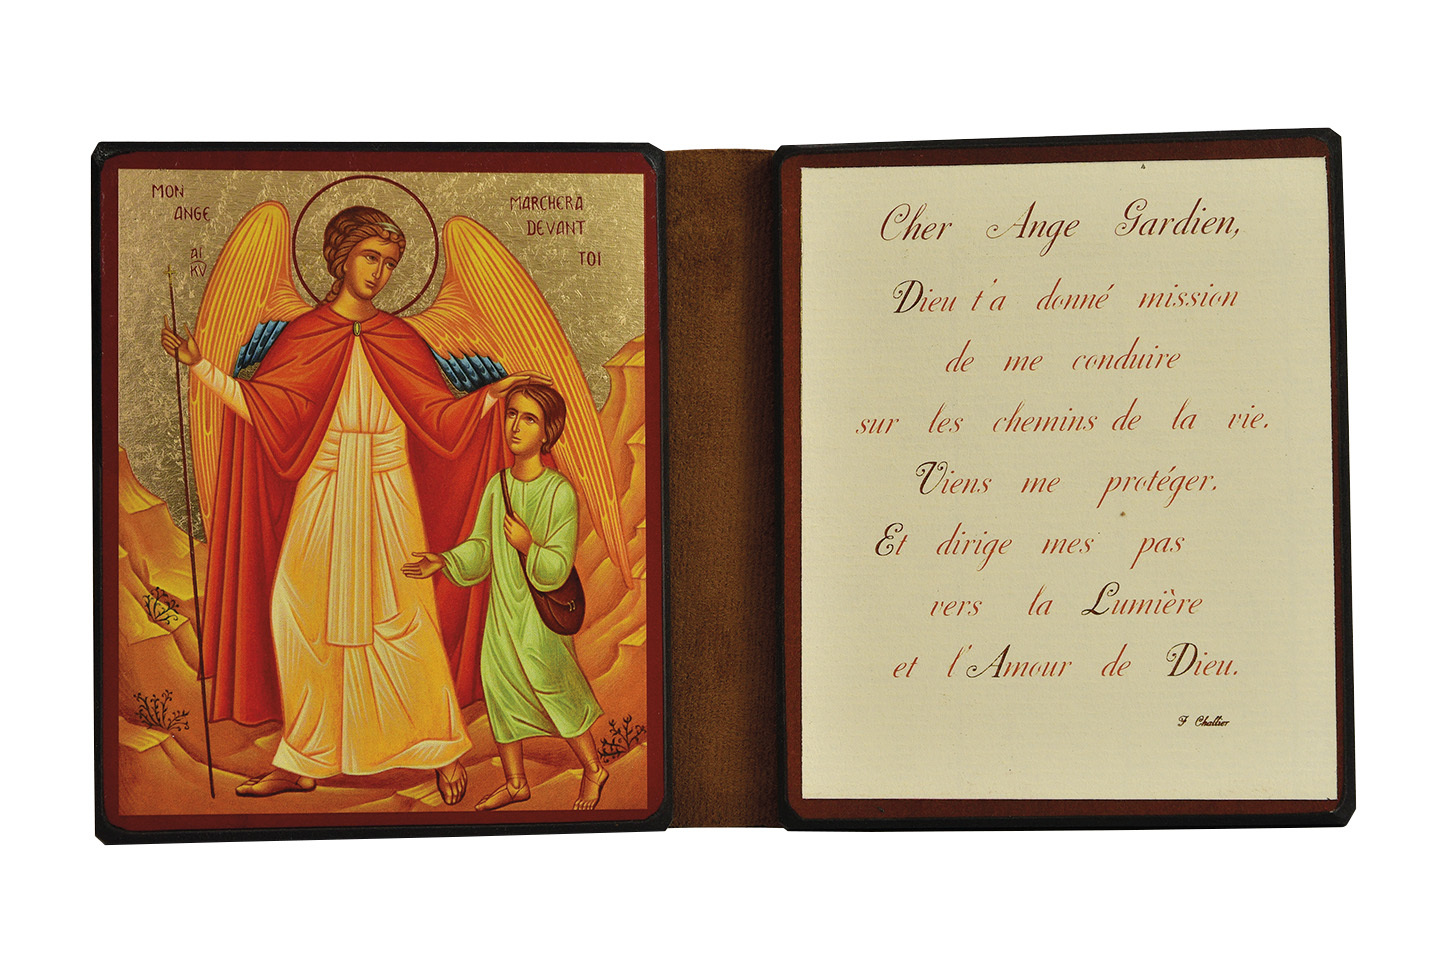 MON
ANGE
AI
KV
MARCHERA
DEVANT
TOI
Cher Ange Gardien,
Dieu t'a donné mission
de me conduire
sur les chemins de la vie.
Viens me protéger.
Et dirige mes pas
vers la Lumière
et l'Amour de Dieu.
F Challier